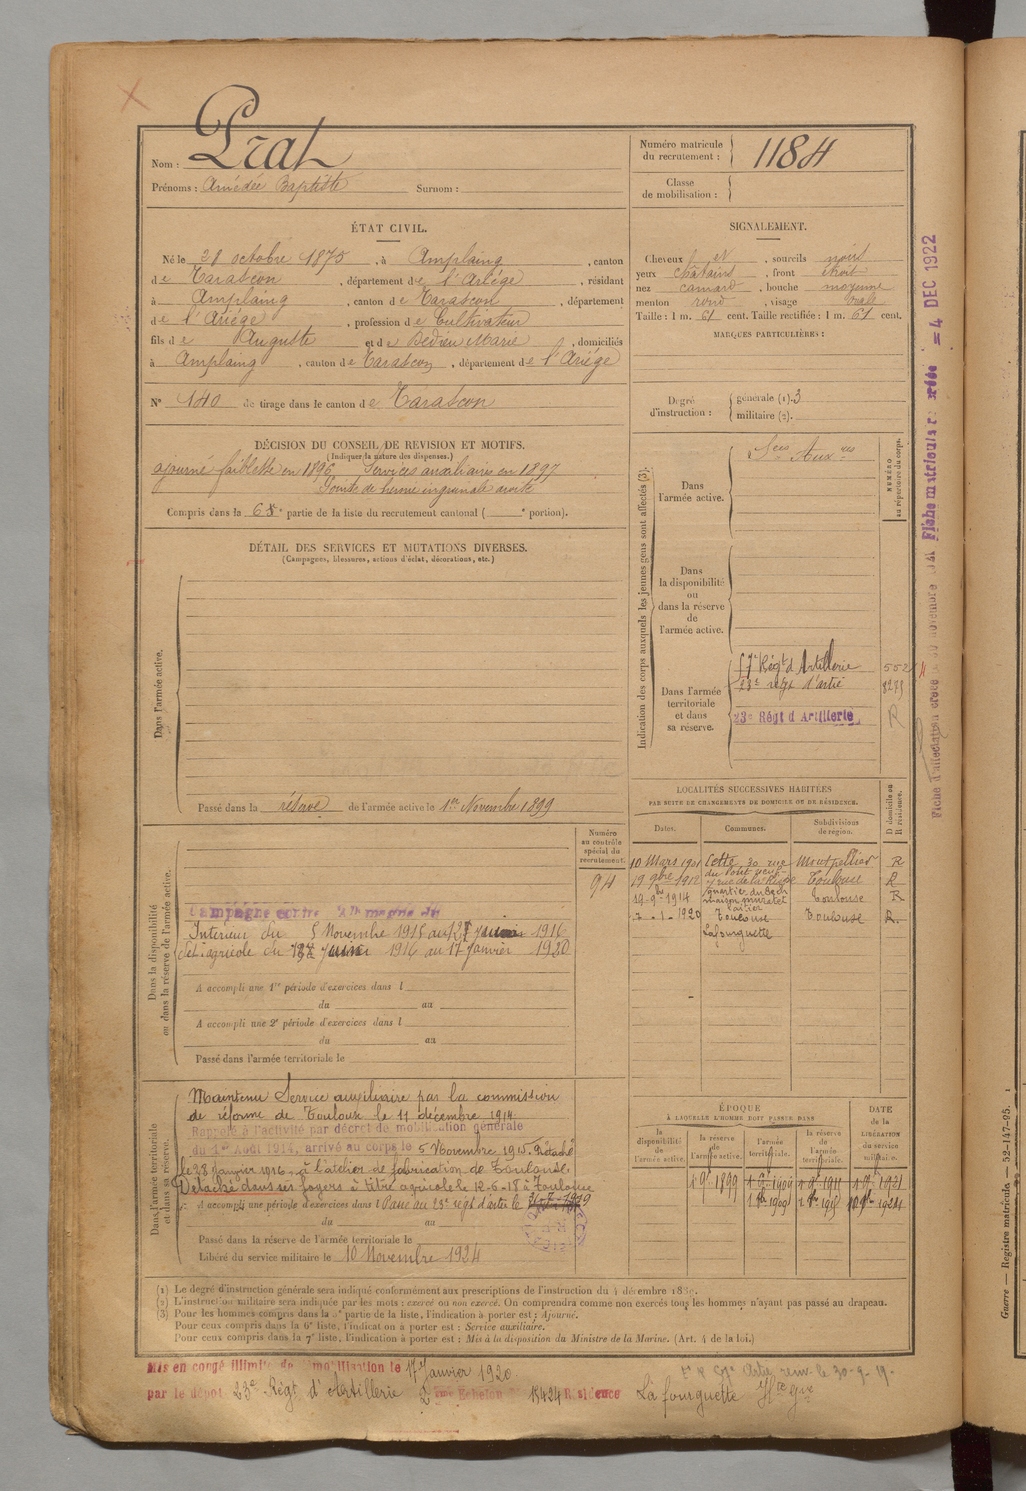 Nom : Prat
Prénoms : Amédée Baptiste Surnom :
Numéro matricule du recrutement : 1184
Classe de mobilisation :
ÉTAT CIVIL.
Né le 28 octobre 1875, à Amplaing, canton
de Tarascon, département de l'Ariège, résidant
à Amplaing, canton de Tarascon, département
de l'Ariège, profession de Cultivateur
fils de Auguste et de Bedieu Marie, domiciliés
à Amplaing, canton de Tarascon, département de l'Ariège
N° 140 de tirage dans le canton de Tarascon
SIGNALEMENT.
Cheveux et, sourcils noirs
yeux châtains, front étroit
nez camard, bouche moyenne
menton rond, visage ovale
Taille : 1 m. 61 cent. Taille rectifiée : 1 m. 61 cent.
MARQUES PARTICULIÈRES :
Degré d'instruction : générale (1). 3
militaire (2).
DÉCISION DU CONSEIL DE REVISION ET MOTIFS.
(Indiquer la nature des dispenses.)
ajourné faiblesse en 1896 Services auxiliaire en 1897
Pointe de hernie inguinale droite
Compris dans la 6e partie de la liste du recrutement cantonal ( e portion).
DÉTAIL DES SERVICES ET MUTATIONS DIVERSES.
(Campagnes, blessures, actions d'éclat, décorations, etc.)
Dans l'armée active.
Passé dans la réserve de l'armée active le 1er Novembre 1899
Indication des corps auxquels les jeunes gens sont affectés (3).
NUMÉRO au répertoire du corps.
Dans l'armée active.
Sces Auxres
Dans la disponibilité ou dans la réserve de l'armée active.
Dans l'armée territoriale et dans sa réserve.
Régt d'Artillerie
23e régt d'artie
23e Régt d'Artillerie
R
LOCALITÉS SUCCESSIVES HABITÉES
PAR SUITE DE CHANGEMENTS DE DOMICILE OU DE RÉSIDENCE.
Dates. Communes. Subdivisions de région. D domicile ou R résidence.
10 Mars 1901 Cette, 30 rue du Pont neuf Montpellier R
19 9bre 1912 rue de la Toulouse R
19-9-1914 maison muratet Toulouse R
7-1-1920 Toulouse Lafourguette Toulouse R.
Numéro au contrôle spécial du recrutement.
94
Dans la disponibilité ou dans la réserve de l'armée active.
Campagne contre l'Allemagne du
Intérieur du 5 Novembre 1915 au 1916
Dét. agricole du 1916 au 17 Janvier 1920
A accompli une 1re période d'exercices dans l
du au
A accompli une 2e période d'exercices dans l
du au
Passé dans l'armée territoriale le
Dans l'armée territoriale et dans sa réserve.
Maintenu Service auxiliaire par la commission
de réforme de Toulouse le 11 décembre 1914
Rappelé à l'activité par décret de mobilisation générale
du 1er Août 1914, arrivé au corps le 5 Novembre 1915. Détaché
le 28 Janvier 1916 à l'atelier de fabrication de Toulouse.
Détaché dans ses foyers à titre agricole le 12-6-18 à Toulouse
A accompli une période d'exercices dans l Passé au 23e régt d'artie le
du au
Passé dans la réserve de l'armée territoriale le
Libéré du service militaire le 10 Novembre 1924
ÉPOQUE
À LAQUELLE L'HOMME DOIT PASSER DANS
DATE de la LIBÉRATION du service militaire.
la disponibilité de l'armée active. la réserve de l'armée active. l'armée territoriale. la réserve de l'armée territoriale.
1 9bre 1899 1 9bre 1909 1 9bre 1915
(1) Le degré d'instruction générale sera indiqué conformément aux prescriptions de l'instruction du 4 décembre 1889.
(2) L'instruction militaire sera indiquée par les mots : exercé ou non exercé. On comprendra comme non exercés tous les hommes n'ayant pas passé au drapeau.
(3) Pour les hommes compris dans la 5e partie de la liste, l'indication à porter est : Ajourné.
Pour ceux compris dans la 6e liste, l'indication à porter est : Service auxiliaire.
Pour ceux compris dans la 7e liste, l'indication à porter est : Mis à la disposition du Ministre de la Marine. (Art. 4 de la loi.)
Mis en congé illimité de démobilisation le 17 Janvier 1920
par le dépôt 23e Régt d'Artillerie 2ème Échelon 15424 Résidence Lafourguette Hte Gne
Artie rein. le 30-9-19.
Fiche matricule créée = 4 DEC 1922
Guerre — Registre matricule — 52-147-25.